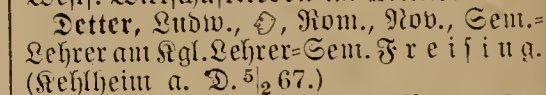 Detter, Ludw., Rom., Nov., Sem.=
Lehrer am Kgl. Lehrer=Sem. Freising.
(Kehlheim a. D. 5/2 67.)